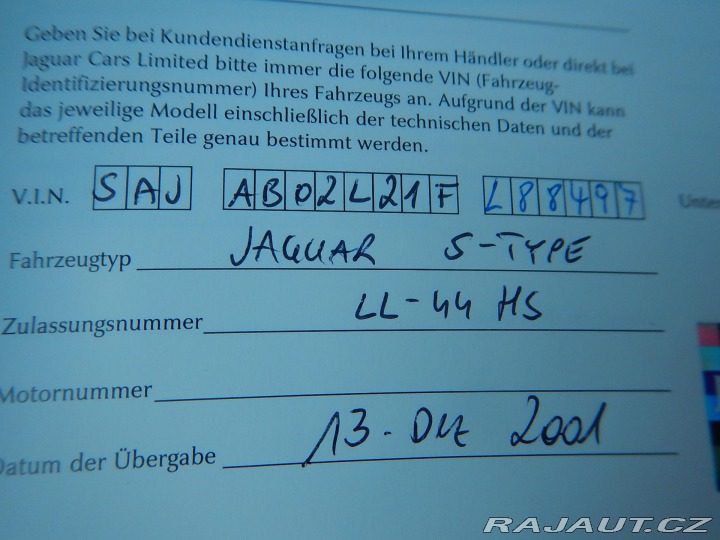 Geben Sie bei Kundendienstanfragen bei Ihrem Händler oder direkt bei
Jaguar Cars Limited bitte immer die folgende VIN (Fahrzeug-
Identifizierungsnummer) Ihres Fahrzeugs an. Aufgrund der VIN kann
das jeweilige Modell einschließlich der technischen Daten und der
betreffenden Teile genau bestimmt werden.
V.I.N. SAJ AB02L21F L88497
Fahrzeugtyp JAGUAR S-TYPE
Zulassungsnummer LL-44 HS
Motornummer
Datum der Übergabe 13. DEZ 2001
RAJAUT.CZ